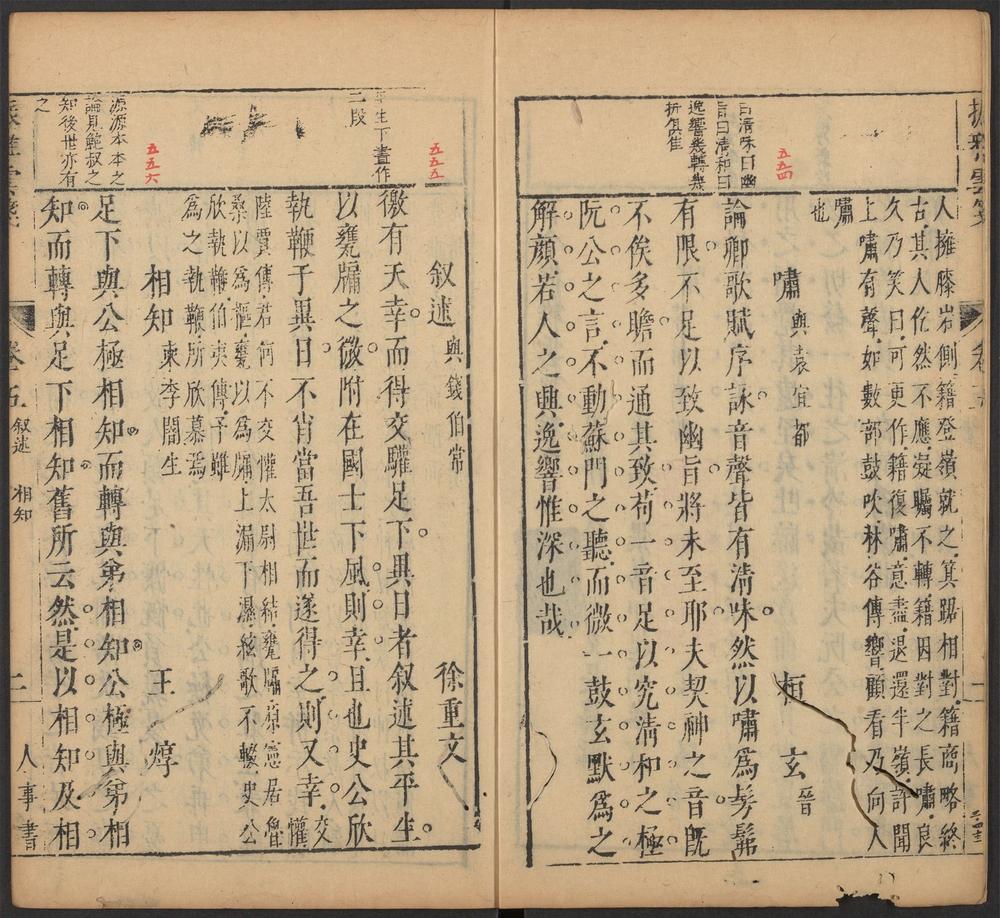 人擁膝岩側籍登嶺就之箕踞相對籍商略終
古其人仡然不應凝矚不轉籍因對之長嘯良
久乃笑曰可更作籍復嘯意盡退還半嶺許聞
上嘯有聲如數部鼓吹林谷傳響顧看乃向人
嘯
也
五五四
嘯 與袁宜都 桓玄晉
曰清味曰幽
旨曰清和曰
逸響幾轉幾
折眞佳
論卿歌賦序詠音聲皆有清味然以嘯爲髣髴
有限不足以致幽旨將未至耶夫契神之音旣
不俟多贍而通其致苟一音足以究清和之極
阮公之言不動蘇門之聽而微一鼓玄默爲之
解顏若人之興逸響惟深也哉
五五五
叙述 與錢伯常 徐重文
生下晝作
三段
徼有天幸而得交驩足下與日者叙述其平生
以甕牖之微附在國士下風則幸且也史公欣
執鞭于異日不肖當吾世而遂得之則又幸交懽
陸賈傳君何不交懽太尉相結甕牖原憲居魯
桑以爲樞甕以爲牖上漏下濕絃歌不輟史公
欣執鞭伯夷傳予雖
爲之執鞭所欣慕焉
五五六
相知 柬李闇生 王焞
源源本本之
論見鮑叔之
知後世亦有
之
足下與公極相知而轉與弟相知公極與弟相
知而轉與足下相知舊所云然是以相知及相
卷五 叙述 相知 二 人事 書